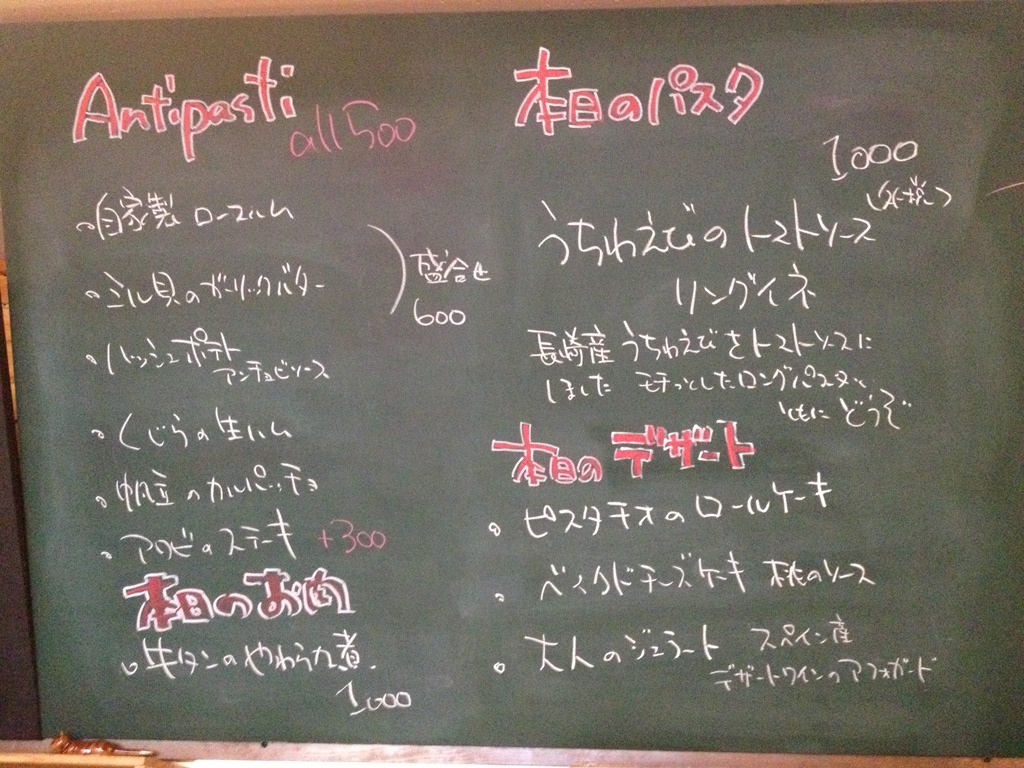 Antipasti
all 500
・自家製 ロースハム
・ミル貝のガーリックバター
盛合せ
600
・ハッシュポテト
アンチョビソース
・くじらの生ハム
・帆立のカルパッチョ
・アワビのステーキ +300
本日のお肉
・牛タンのやわらか煮
1000
本日のパスタ
1000
うちわえびのトマトソース
リングイネ
長崎産 うちわえびをトマトソースに
しました モチっとしたロングパスタと
ともに どうぞ
本日のデザート
・ピスタチオのロールケーキ
・ベイクドチーズケーキ 桃のソース
・大人のジェラート スペイン産
デザートワインのアフォガード